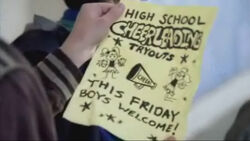 HIGH SCHOOL
CHEERLEADING
TRYOUTS
THIS FRIDAY
BOYS WELCOME!